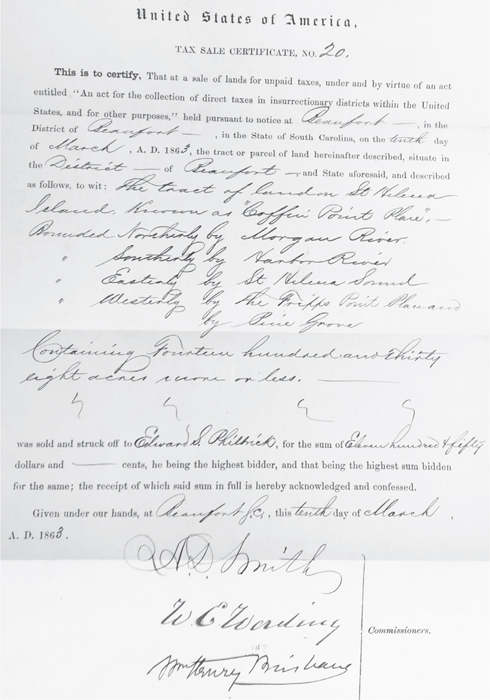 United States of America,
TAX SALE CERTIFICATE, NO. 20.
This is to certify, That at a sale of lands for unpaid taxes, under and by virtue of an act
entitled "An act for the collection of direct taxes in insurrectionary districts within the United
States, and for other purposes," held pursuant to notice at Beaufort —, in the
District of Beaufort —, in the State of South Carolina, on the tenth day
of March, A. D. 1863, the tract or parcel of land hereinafter described, situate in
the District — of Beaufort — and State aforesaid, and described
as follows, to wit: The tract of land on St Helena
Island, Known as "Coffin Point Place", —
Bounded Northerly by Morgan River
" Southerly by Harbor River
" Easterly by St Helena Sound
" Westerly by the Fripps Point Place and
by Pine Grove
Containing Fourteen hundred and Thirty
eight acres more or less. —
was sold and struck off to Edward S. Philbrick, for the sum of Eleven hundred & fifty
dollars and — cents, he being the highest bidder, and that being the highest sum bidden
for the same; the receipt of which said sum in full is hereby acknowledged and confessed.
Given under our hands, at Beaufort S.C., this tenth day of March,
A. D. 1863.
A. D. Smith
W E Wording
Commissioners.
Wm Henry Brisbane